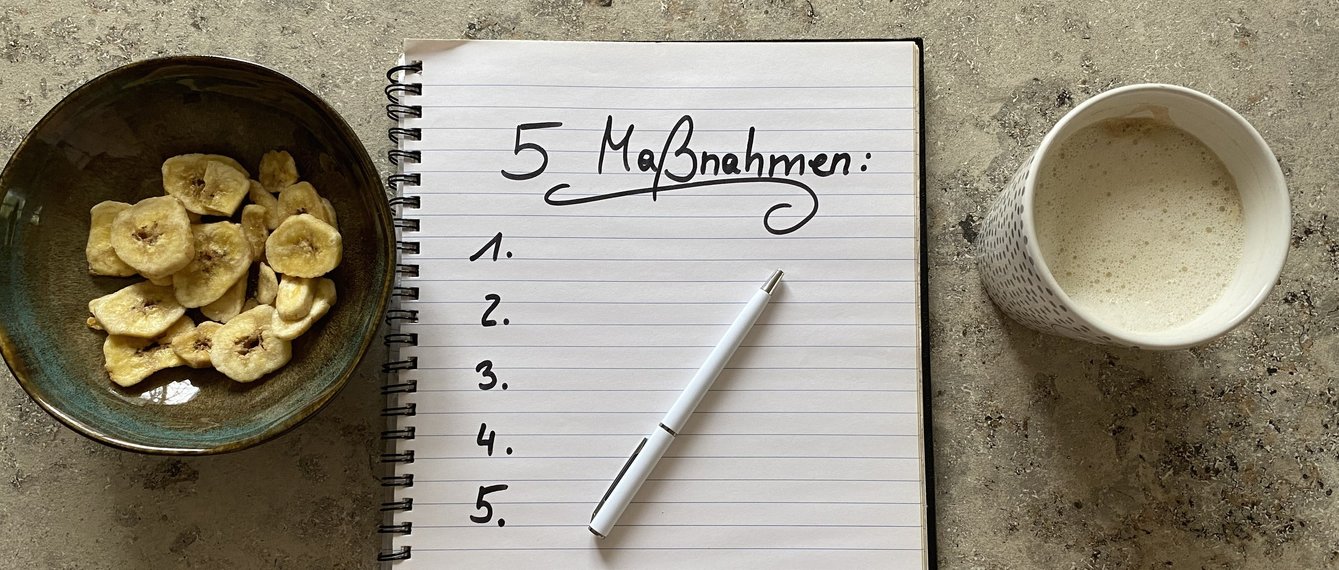 5 Maßnahmen:
1.
2.
3.
4.
5.